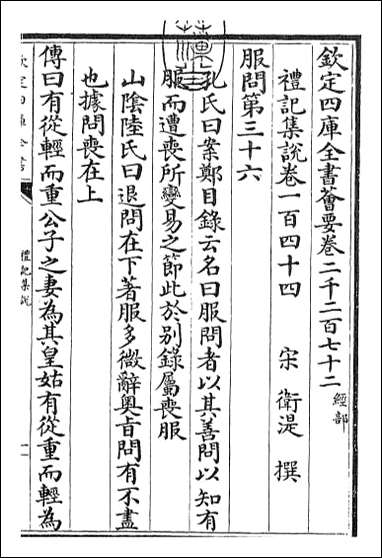 欽定四庫全書薈要卷二千二百七十二 經部
禮記集說卷一百四十四 宋 衛湜 撰
服問第三十六
孔氏曰案鄭目錄云名曰服問者以其善問以知有
服而遭喪所變易之節此於別錄屬喪服
山陰陸氏曰退問在下著服多微辭奧旨問有不盡
也據問喪在上
傳曰有從輕而重公子之妻為其皇姑有從重而輕為
欽定四庫全書
禮記集說
一